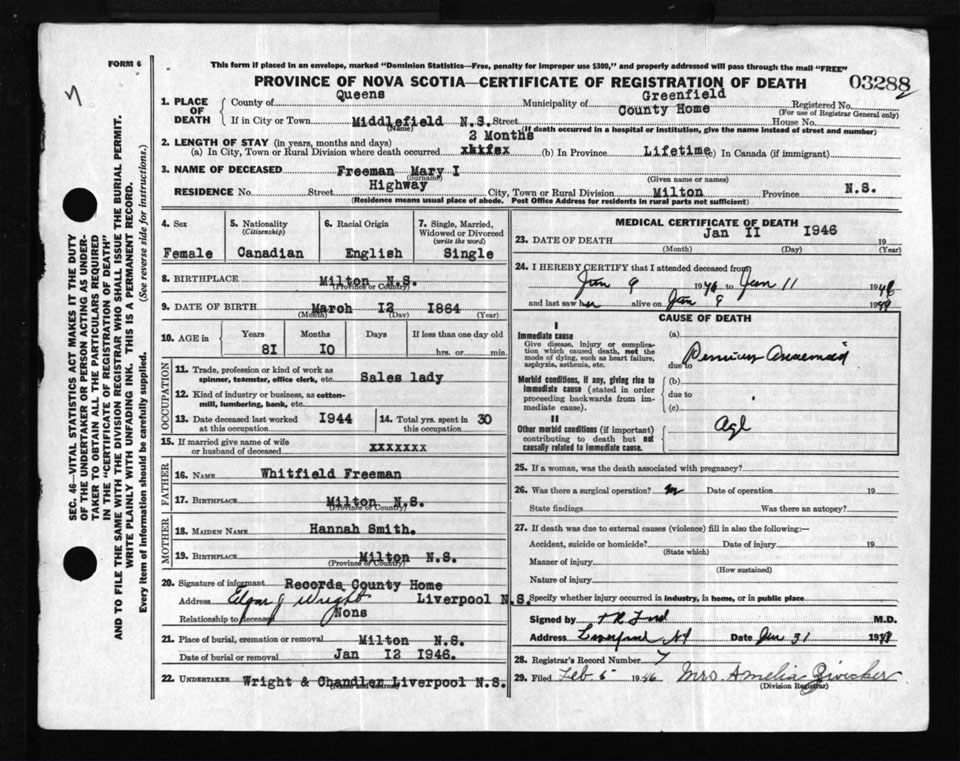 FORM 6
This form if placed in an envelope, marked "Dominion Statistics—Free, penalty for improper use $300," and properly addressed will pass through the mail "FREE"
PROVINCE OF NOVA SCOTIA—CERTIFICATE OF REGISTRATION OF DEATH
03288
SEC. 46—VITAL STATISTICS ACT MAKES IT THE DUTY
OF THE UNDERTAKER OR PERSON ACTING AS UNDER-
TAKER TO OBTAIN ALL THE PARTICULARS REQUIRED
IN THE "CERTIFICATE OF REGISTRATION OF DEATH"
AND TO FILE THE SAME WITH THE DIVISION REGISTRAR WHO SHALL ISSUE THE BURIAL PERMIT.
WRITE PLAINLY WITH UNFADING INK. THIS IS A PERMANENT RECORD.
Every item of information should be carefully supplied. (See reverse side for instructions.)
1. PLACE OF DEATH
County of Queens Municipality of Greenfield Registered No.
(For use of Registrar General only)
If in City or Town Middlefield N.S. Street County Home House No.
(Name) (If death occurred in a hospital or institution, give the name instead of street and number)
2. LENGTH OF STAY (in years, months and days) 2 Months
(a) In City, Town or Rural Division where death occurred (b) In Province Lifetime (c) In Canada (if immigrant)
3. NAME OF DECEASED Freeman Mary I
(Surname) (Given name or names)
RESIDENCE No. Street Highway City, Town or Rural Division Milton Province N.S.
(Residence means usual place of abode. Post Office Address for residents in rural parts not sufficient)
4. Sex Female
5. Nationality (Citizenship) Canadian
6. Racial Origin English
7. Single, Married, Widowed or Divorced (write the word) Single
8. BIRTHPLACE Milton N.S.
(Province or Country)
9. DATE OF BIRTH March I2 I864
(Month) (Day) (Year)
10. AGE in Years Months Days If less than one day old
8I IO hrs. or min.
OCCUPATION
11. Trade, profession or kind of work as spinner, teamster, office clerk, etc. Sales lady
12. Kind of industry or business, as cotton-mill, lumbering, bank, etc.
13. Date deceased last worked at this occupation I944
14. Total yrs. spent in this occupation 30
15. If married give name of wife or husband of deceased xxxxxxx
FATHER
16. NAME Whitfield Freeman
17. BIRTHPLACE Milton N.S.
(Province or Country)
MOTHER
18. MAIDEN NAME Hannah Smith.
19. BIRTHPLACE Milton N.S.
(Province or Country)
20. Signature of informant Records County Home
Address Edgar J Wright Liverpool N.S.
Relationship to deceased Nons
21. Place of burial, cremation or removal Milton N.S.
Date of burial or removal Jan I2 I946.
22. UNDERTAKER Wright & Chandler Liverpool N.S.
(Name and address)
MEDICAL CERTIFICATE OF DEATH
23. DATE OF DEATH Jan II I946 19
(Month) (Day) (Year)
24. I HEREBY CERTIFY that I attended deceased from
Jan 9 1946 to Jan 11 1946
and last saw her alive on Jan 9 19
CAUSE OF DEATH
I
Immediate cause
Give disease, injury or complication which caused death, not the mode of dying, such as heart failure, asphyxia, asthenia, etc.
(a) Pernicious Anaemia
due to
Morbid conditions, if any, giving rise to immediate cause (stated in order proceeding backwards from immediate cause).
(b)
due to
(c)
II
Other morbid conditions (if important) contributing to death but not causally related to immediate cause.
Age
25. If a woman, was the death associated with pregnancy?
26. Was there a surgical operation? Date of operation 19
State findings Was there an autopsy?
27. If death was due to external causes (violence) fill in also the following:—
Accident, suicide or homicide? Date of injury 19
(State which)
Manner of injury
(How sustained)
Nature of injury
Specify whether injury occurred in industry, in home, or in public place
Signed by M.D.
Address Liverpool NS Date Jan 31 19
28. Registrar's Record Number 7
29. Filed Feb 5 1946 Mrs. Amelia Zwicker
(Division Registrar)